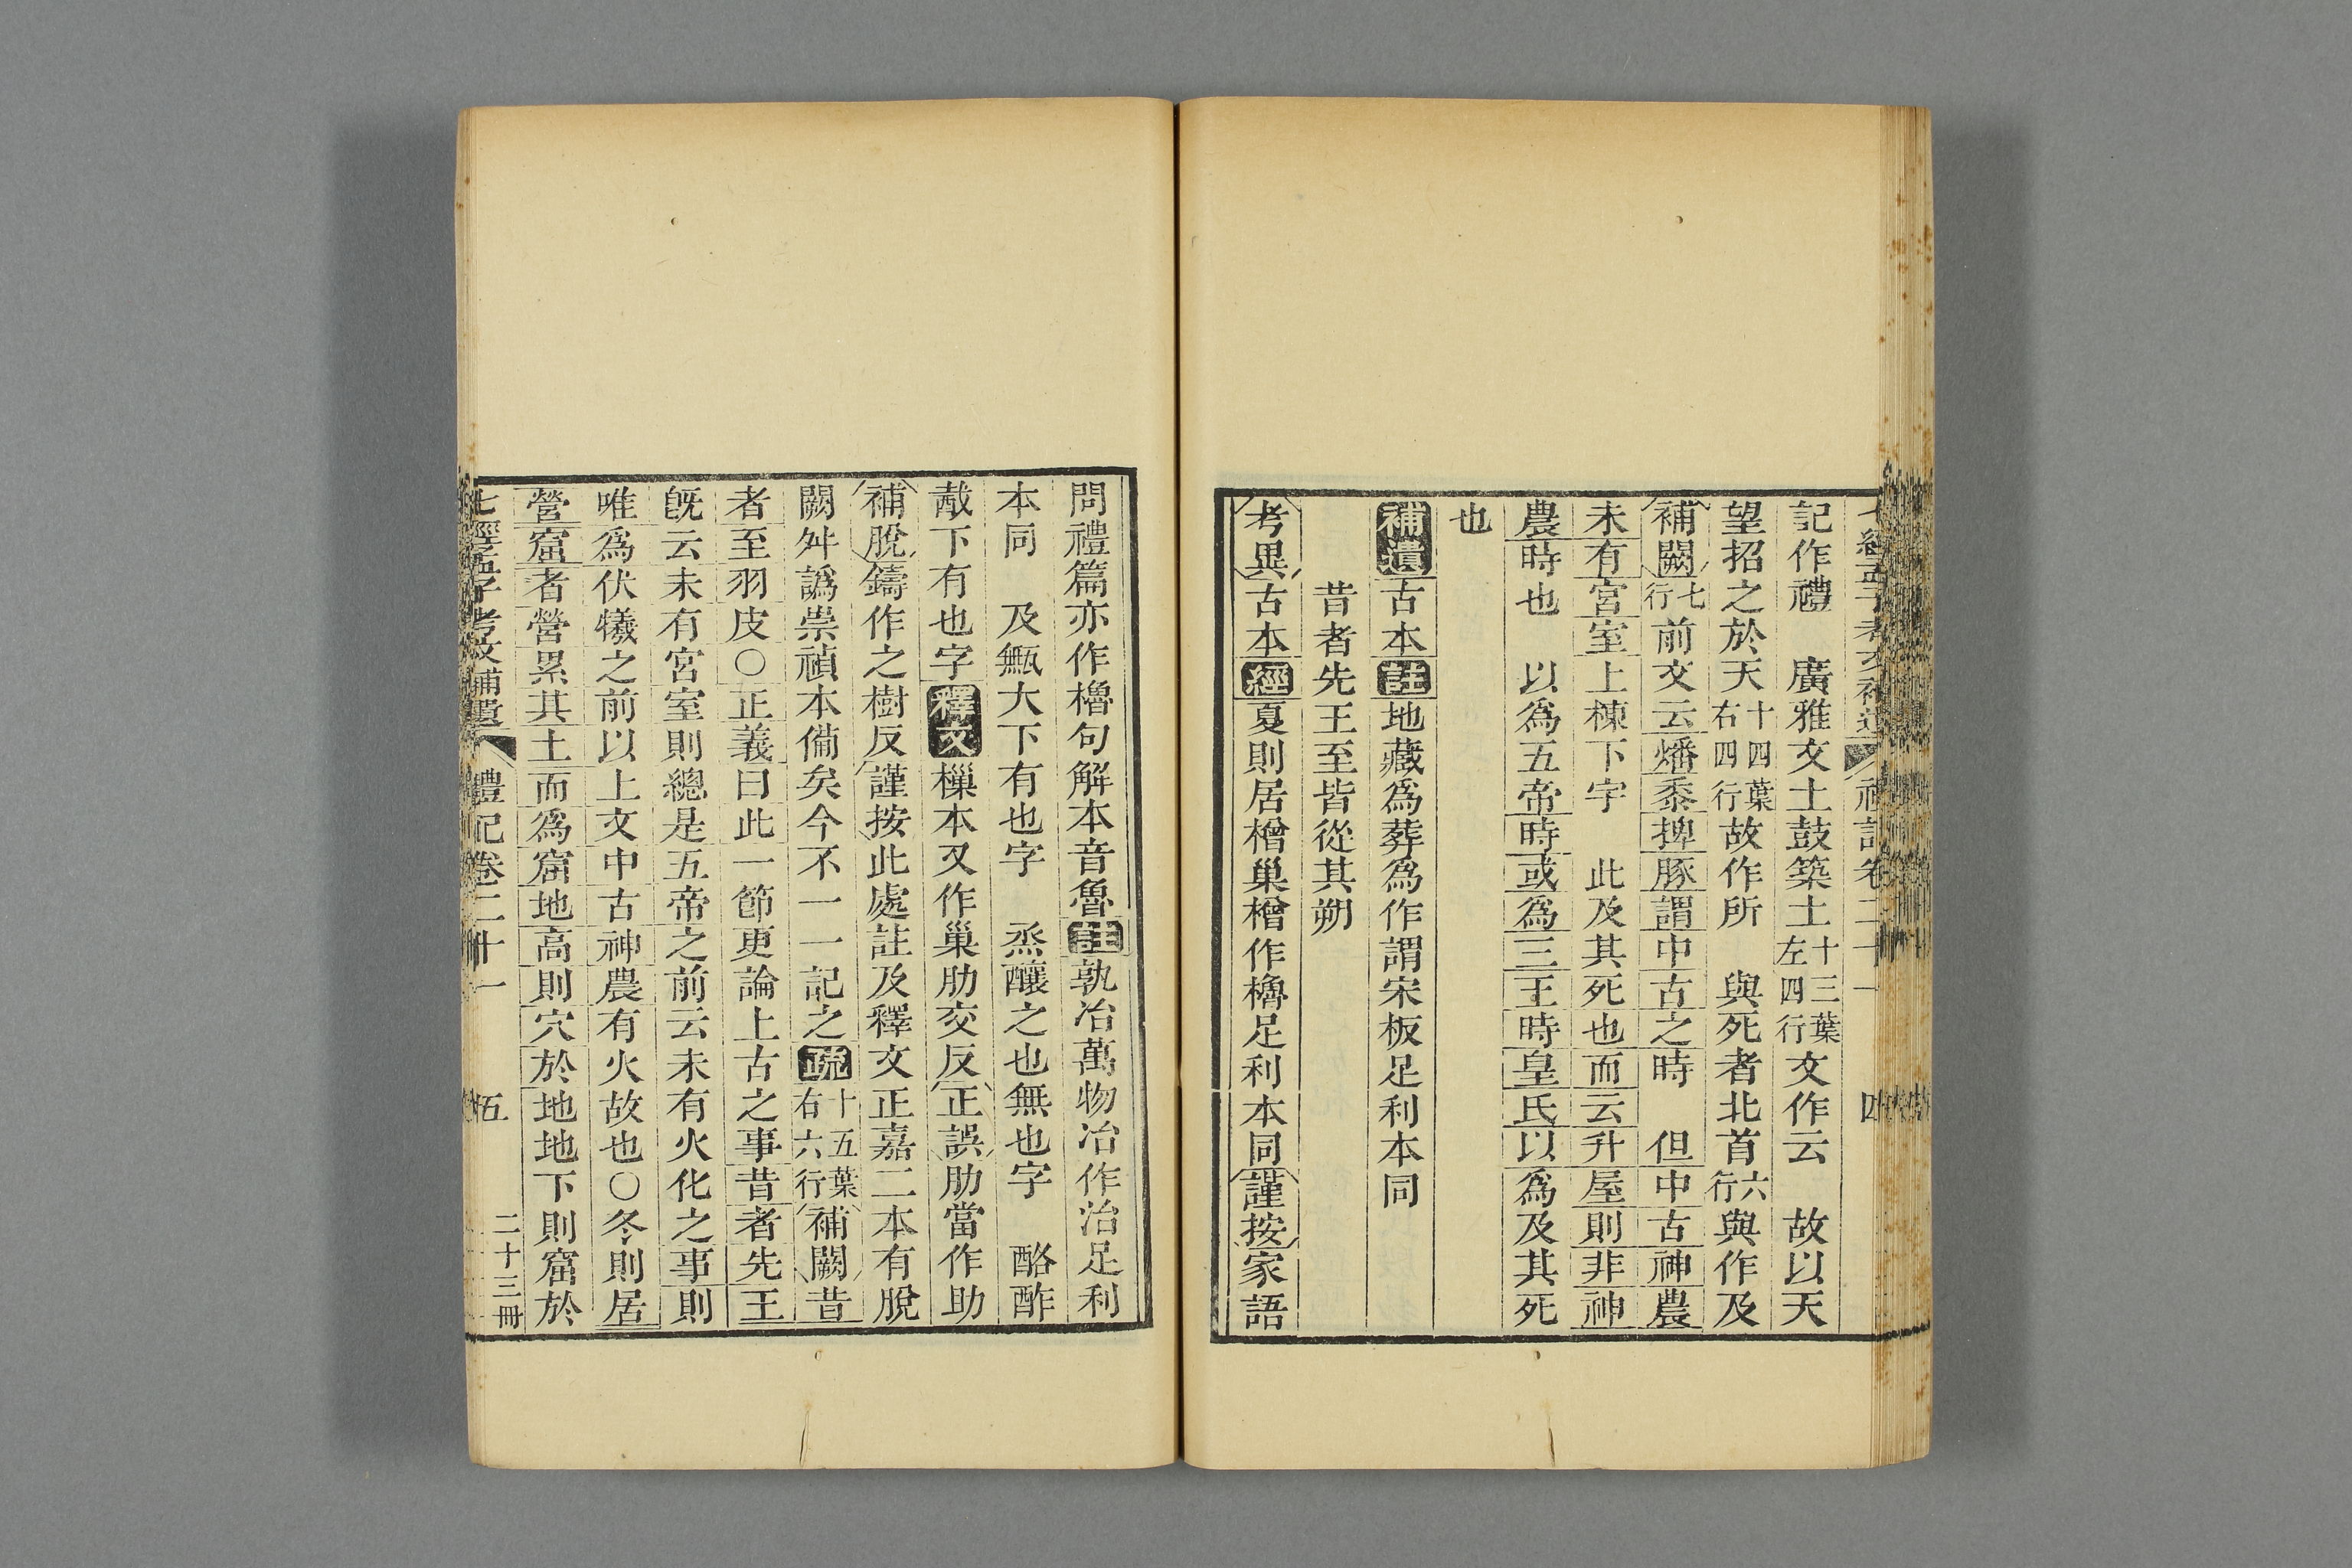 記作禮　廣雅文土鼓築土十三葉左四行文作云　故以天
望招之於天十四葉右四行故作所　與死者北首六行與作及
補闕七行前文云燔黍捭豚謂中古之時　但中古神農
未有宮室上棟下宇　此及其死也而云升屋則非神
農時也　以為五帝時或為三王時皇氏以為及其死
也
補遺古本註地藏為葬為作謂宋板足利本同
昔者先王至皆從其朔
考異古本經夏則居橧巢橧作櫓足利本同謹按家語
問禮篇亦作櫓句解本音魯註孰冶萬物冶作治足利
本同　及甒大下有也字　烝釀之也無也字　酪酢
胾下有也字釋文樔本又作巢肋交反正誤肋當作助
補脫鑄作之樹反謹按此處註及釋文正嘉二本有脫
闕舛譌崇禎本備矣今不一一記之疏十五葉右六行補闕昔
者至羽皮○正義曰此一節更論上古之事昔者先王
既云未有宮室則總是五帝之前云未有火化之事則
唯為伏犧之前以上文中古神農有火故也○冬則居
營窟者營累其土而為窟地高則穴於地地下則窟於
七經孟子考文補遺　禮記卷二十一　五　二十三冊